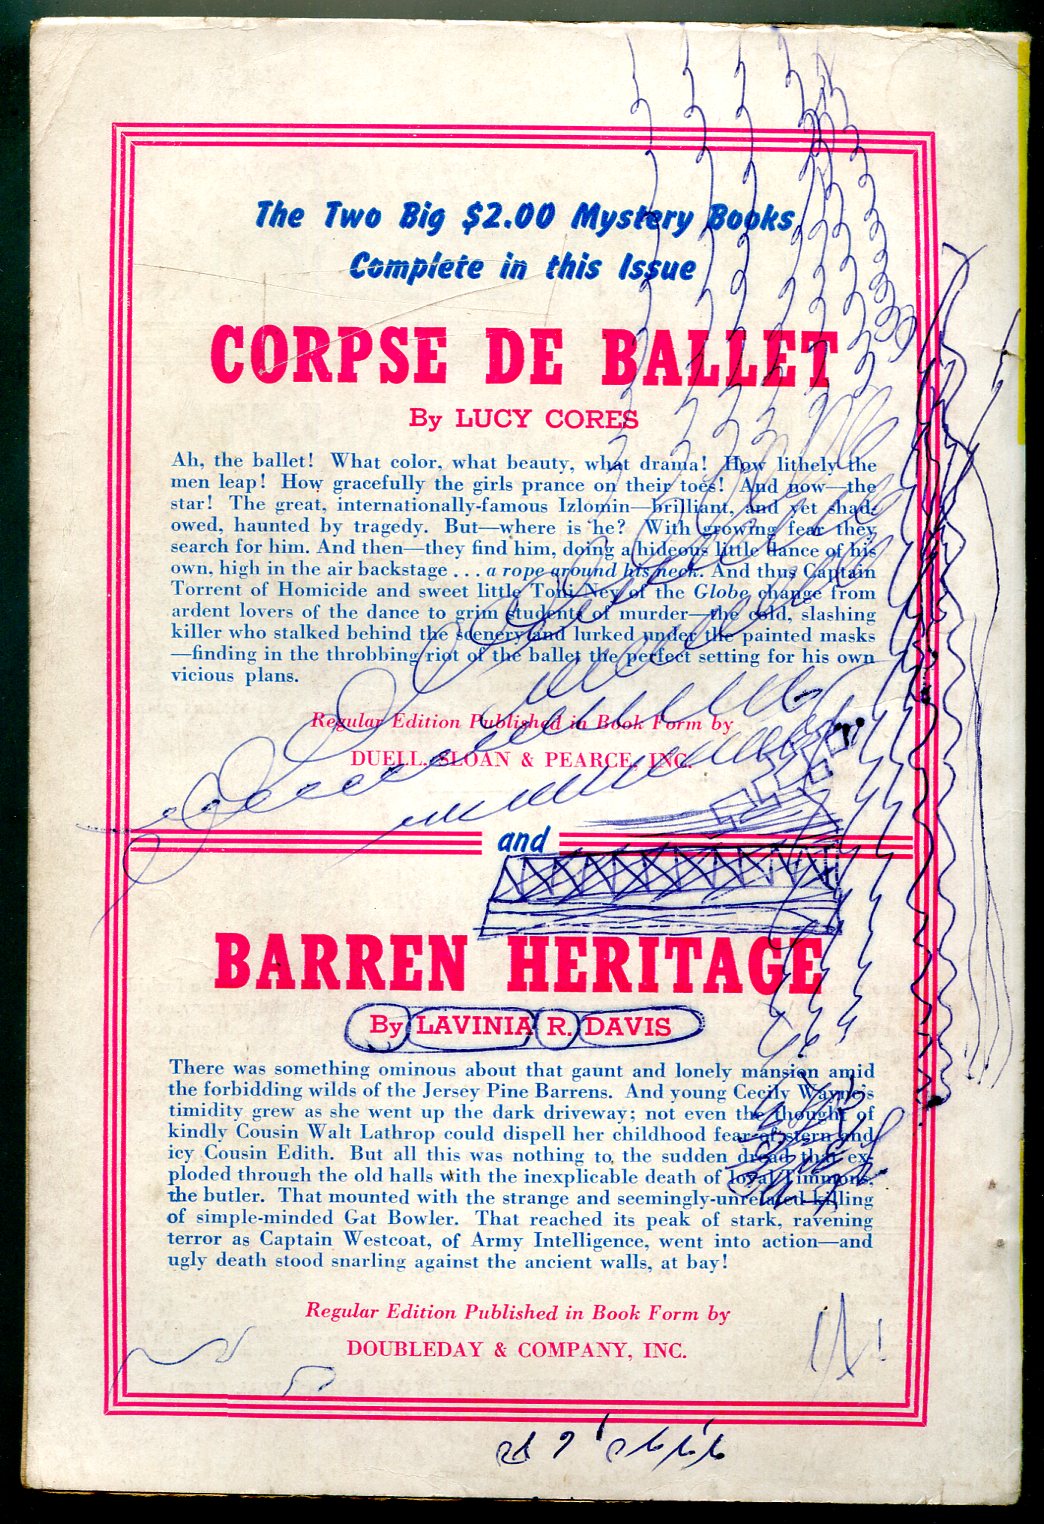 The Two Big $2.00 Mystery Books
Complete in this Issue
CORPSE DE BALLET
By LUCY CORES
Ah, the ballet! What color, what beauty, what drama! How lithely the
men leap! How gracefully the girls prance on their toes! And now—the
star! The great, internationally-famous Izlomin—brilliant, and yet shad-
owed, haunted by tragedy. But—where is he? With growing fear they
search for him. And then—they find him, doing a hideous little dance of his
own, high in the air backstage . . . a rope around his neck. And thus Captain
Torrent of Homicide and sweet little Toni Ney of the Globe change from
ardent lovers of the dance to grim students of murder—the cold, slashing
killer who stalked behind the scenery and lurked under the painted masks
—finding in the throbbing riot of the ballet the perfect setting for his own
vicious plans.
Regular Edition Published in Book Form by
DUELL, SLOAN & PEARCE, INC.
and
BARREN HERITAGE
By LAVINIA R. DAVIS
There was something ominous about that gaunt and lonely mansion amid
the forbidding wilds of the Jersey Pine Barrens. And young Cecily Wayne's
timidity grew as she went up the dark driveway; not even the thought of
kindly Cousin Walt Lathrop could dispell her childhood fear of stern and
icy Cousin Edith. But all this was nothing to, the sudden dread that ex-
ploded through the old halls with the inexplicable death of loyal Timmons,
the butler. That mounted with the strange and seemingly-unrelated killing
of simple-minded Gat Bowler. That reached its peak of stark, ravening
terror as Captain Westcoat, of Army Intelligence, went into action—and
ugly death stood snarling against the ancient walls, at bay!
Regular Edition Published in Book Form by
DOUBLEDAY & COMPANY, INC.